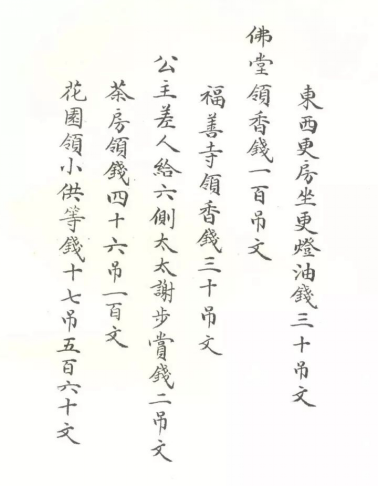 東西更房坐更燈油錢三十吊文
佛堂領香錢一百吊文
福善寺領香錢三十吊文
公主差人給六側太太謝步賞錢二吊文
茶房領錢四十六吊一百文
花園領小供等錢十七吊五百六十文